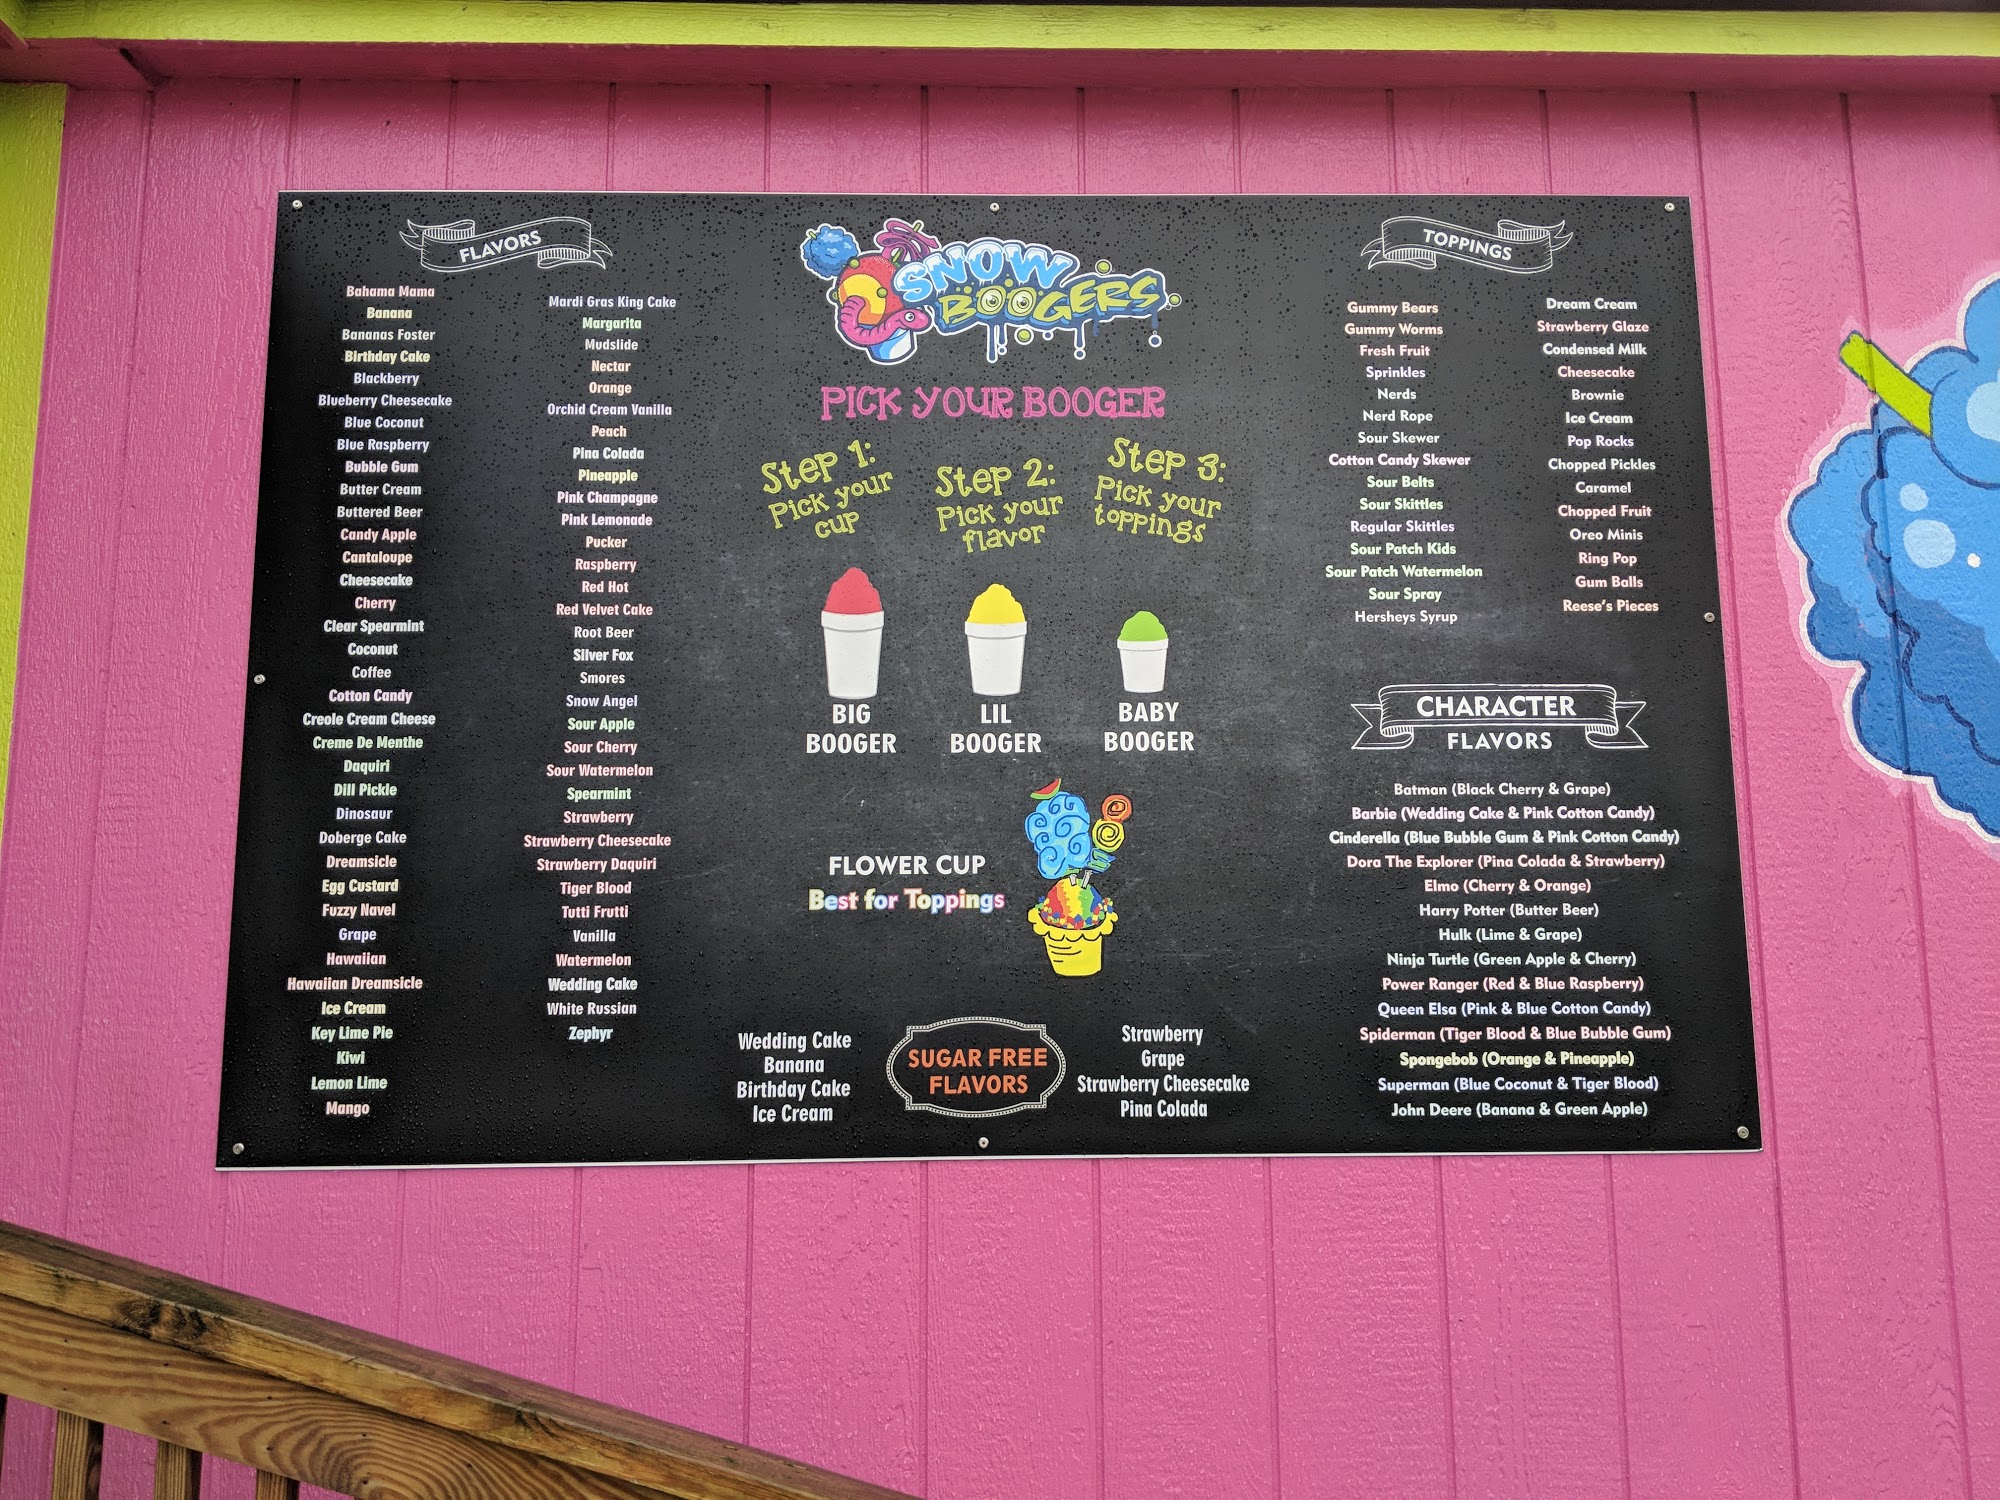 FLAVORS
Bahama Mama
Banana
Bananas Foster
Birthday Cake
Blackberry
Blueberry Cheesecake
Blue Coconut
Blue Raspberry
Bubble Gum
Butter Cream
Buttered Beer
Candy Apple
Cantaloupe
Cheesecake
Cherry
Clear Spearmint
Coconut
Coffee
Cotton Candy
Creole Cream Cheese
Creme De Menthe
Daquiri
Dill Pickle
Dinosaur
Doberge Cake
Dreamsicle
Egg Custard
Fuzzy Navel
Grape
Hawaiian
Hawaiian Dreamsicle
Ice Cream
Key Lime Pie
Kiwi
Lemon Lime
Mango
Mardi Gras King Cake
Margarita
Mudslide
Nectar
Orange
Orchid Cream Vanilla
Peach
Pina Colada
Pineapple
Pink Champagne
Pink Lemonade
Pucker
Raspberry
Red Hot
Red Velvet Cake
Root Beer
Silver Fox
Smores
Snow Angel
Sour Apple
Sour Cherry
Sour Watermelon
Spearmint
Strawberry
Strawberry Cheesecake
Strawberry Daquiri
Tiger Blood
Tutti Frutti
Vanilla
Watermelon
Wedding Cake
White Russian
Zephyr
SNOW
BOOGERS
PICK YOUR BOOGER
Step 1:
Pick your
cup
Step 2:
Pick your
flavor
Step 3:
Pick your
toppings
BIG
BOOGER
LIL
BOOGER
BABY
BOOGER
FLOWER CUP
Best for Toppings
Wedding Cake
Banana
Birthday Cake
Ice Cream
SUGAR FREE
FLAVORS
Strawberry
Grape
Strawberry Cheesecake
Pina Colada
TOPPINGS
Gummy Bears
Gummy Worms
Fresh Fruit
Sprinkles
Nerds
Nerd Rope
Sour Skewer
Cotton Candy Skewer
Sour Belts
Sour Skittles
Regular Skittles
Sour Patch Kids
Sour Patch Watermelon
Sour Spray
Hersheys Syrup
Dream Cream
Strawberry Glaze
Condensed Milk
Cheesecake
Brownie
Ice Cream
Pop Rocks
Chopped Pickles
Caramel
Chopped Fruit
Oreo Minis
Ring Pop
Gum Balls
Reese's Pieces
CHARACTER
FLAVORS
Batman (Black Cherry & Grape)
Barbie (Wedding Cake & Pink Cotton Candy)
Cinderella (Blue Bubble Gum & Pink Cotton Candy)
Dora The Explorer (Pina Colada & Strawberry)
Elmo (Cherry & Orange)
Harry Potter (Butter Beer)
Hulk (Lime & Grape)
Ninja Turtle (Green Apple & Cherry)
Power Ranger (Red & Blue Raspberry)
Queen Elsa (Pink & Blue Cotton Candy)
Spiderman (Tiger Blood & Blue Bubble Gum)
Spongebob (Orange & Pineapple)
Superman (Blue Coconut & Tiger Blood)
John Deere (Banana & Green Apple)